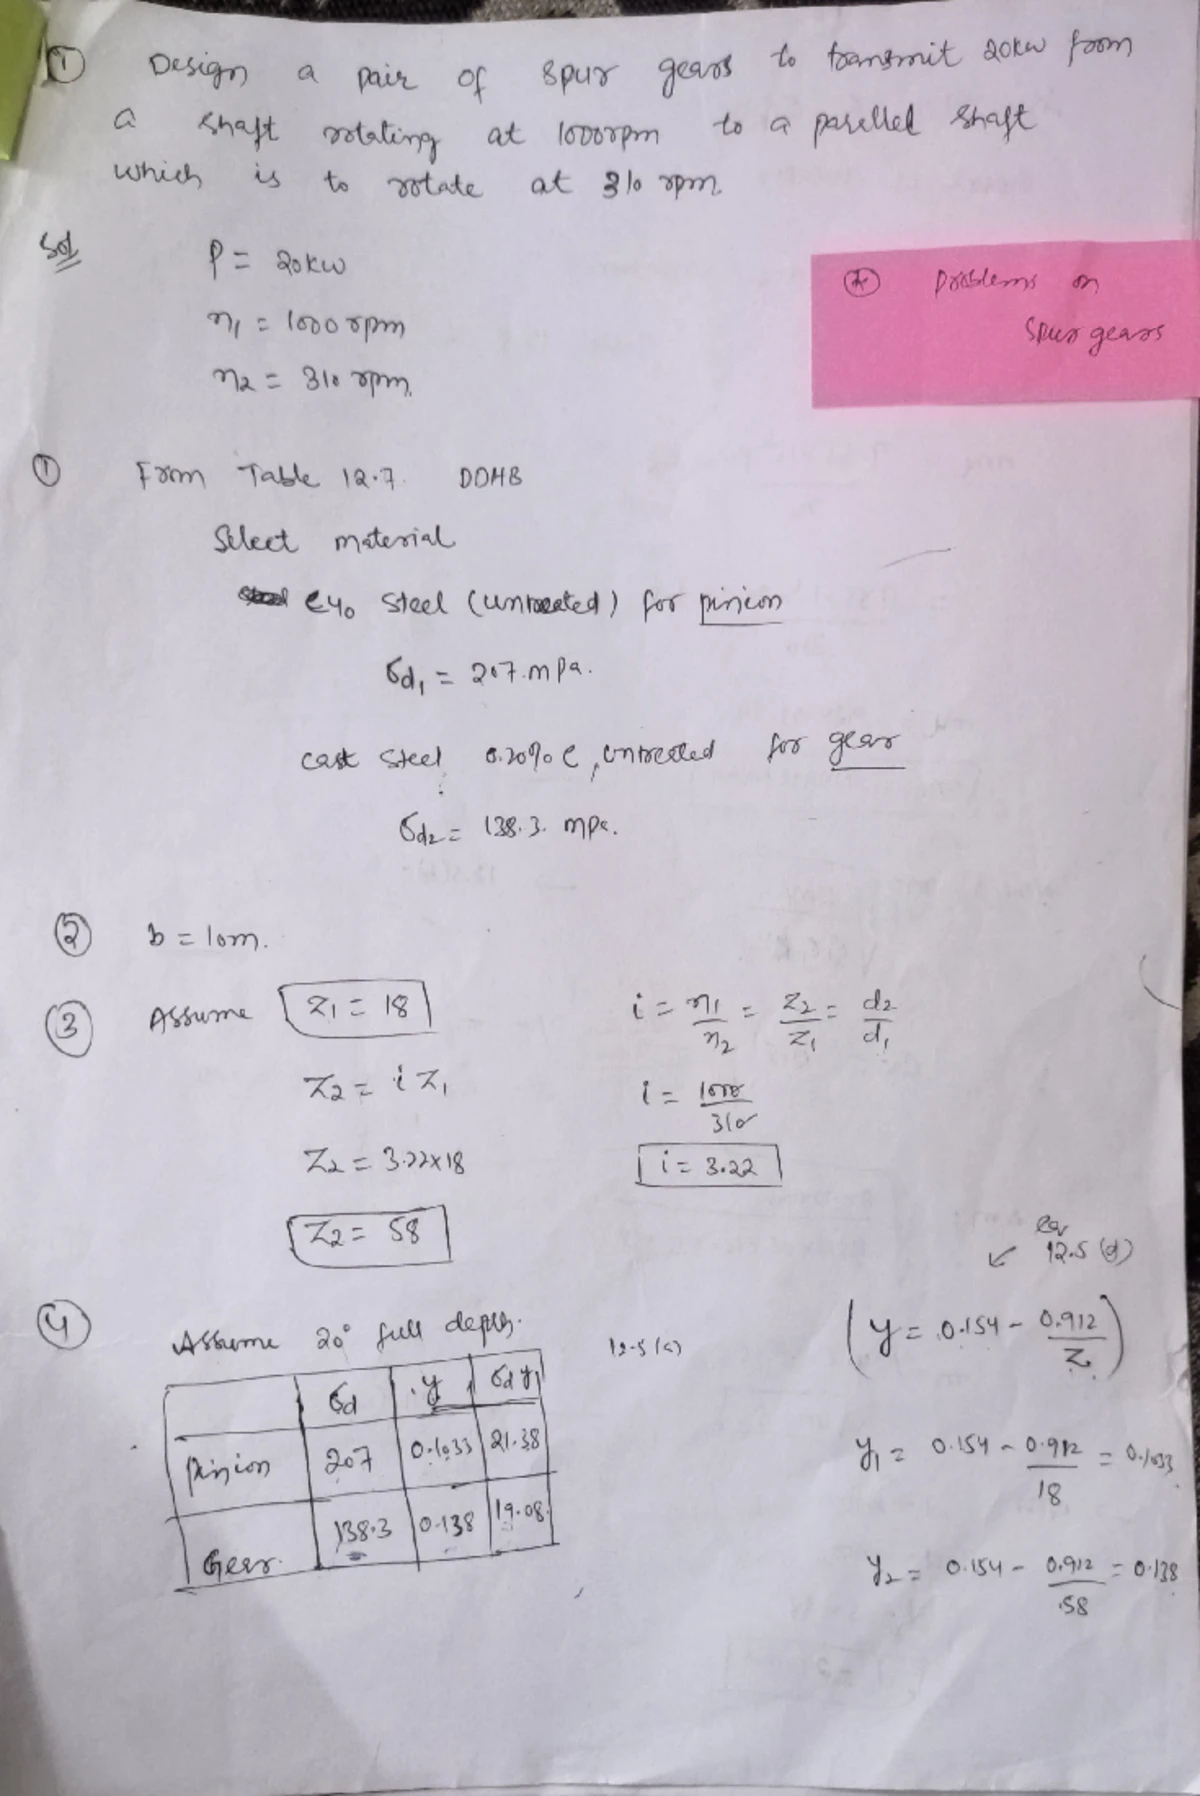 ① Design a pair of spur gears to transmit 20kw from
a shaft rotating at 1000rpm to a parellel shaft
which is to rotate at 310 rpm.
Sol P = 20kw
n1 = 1000 rpm
n2 = 310 rpm.
* Problems on
spur gears
① From Table 12.7. DDHB
Select material
C40 steel (untreated) for pinion
σd1 = 207 mpa.
cast steel 0.20% C, untreated for gear
σd2 = 138.3. mpa.
② b = 10m.
③ Assume Z1 = 18
Z2 = i Z1
Z2 = 3.22x18
Z2 = 58
i = n1/n2 = Z2/Z1 = d2/d1
i = 1000/310
i = 3.22
④ Assume 20° full depth.
12.5(a)
12.5(d)
(y = 0.154 - 0.912/Z)
σd y σdy
Pinion 207 0.1033 21.38
Gear. 138.3 0.138 19.08
y1 = 0.154 - 0.912/18 = 0.1033
y2 = 0.154 - 0.912/58 = 0.138